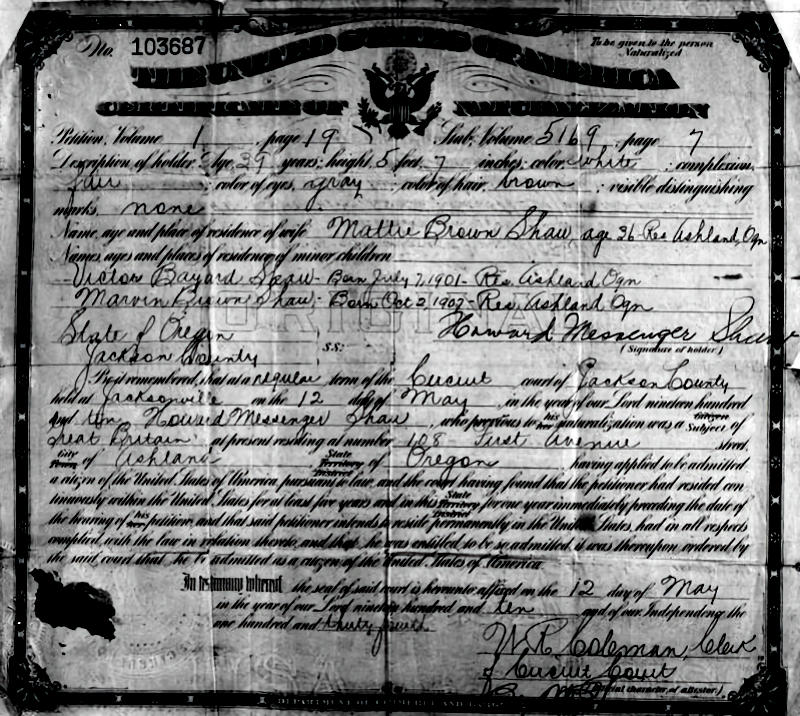 No. 103687
To be given to the person
Naturalized
THE UNITED STATES OF AMERICA
CERTIFICATE OF NATURALIZATION
Petition, Volume 1, page 19; Stub, Volume 5169, page 7
Description of holder: Age, 39 years; height, 5 feet, 7 inches; color, white; complexion,
fair; color of eyes, gray; color of hair, brown; visible distinguishing
marks, none
Name, age and place of residence of wife Mattie Brown Shaw, age 36 - Res. Ashland, Ogn
Names, ages and places of residence of minor children
Victor Bayard Shaw - Born July 7, 1901 - Res. Ashland Ogn
Marvin Brown Shaw - Born Oct 2, 1907 - Res. Ashland Ogn
ORIGINAL
State of Oregin
Howard Messenger Shaw
Jackson County
S.S:
(Signature of holder)
Be it remembered, that at a regular term of the Circuit court of Jackson County
held at Jacksonville on the 12 day of May, in the year of our Lord nineteen hundred
and ten Howard Messenger Shaw, who previous to his her naturalization was a Citizen Subject of
Great Britain, at present residing at number 108 First Avenue street,
City Town of Ashland State Territory District of Oregon, having applied to be admitted
a citizen of the United States of America pursuant to law, and the court having found that the petitioner had resided con
tinuously within the United States for at least five years and in this State Territory District for one year immediately preceding the date of
the hearing of his her petition, and that said petitioner intends to reside permanently in the United States, had in all respects
complied with the law in relation thereto, and that he was entitled to be so admitted, it was thereupon ordered by
the said court that he be admitted as a citizen of the United States of America.
In testimony whereof the seal of said court is hereunto affixed on the 12 day of May
in the year of our Lord nineteen hundred and ten and of our Independence the
one hundred and thirty fourth
W. R. Coleman, Clerk
of Circuit Court
(Official character of attestor.)
DEPARTMENT OF COMMERCE AND LABOR